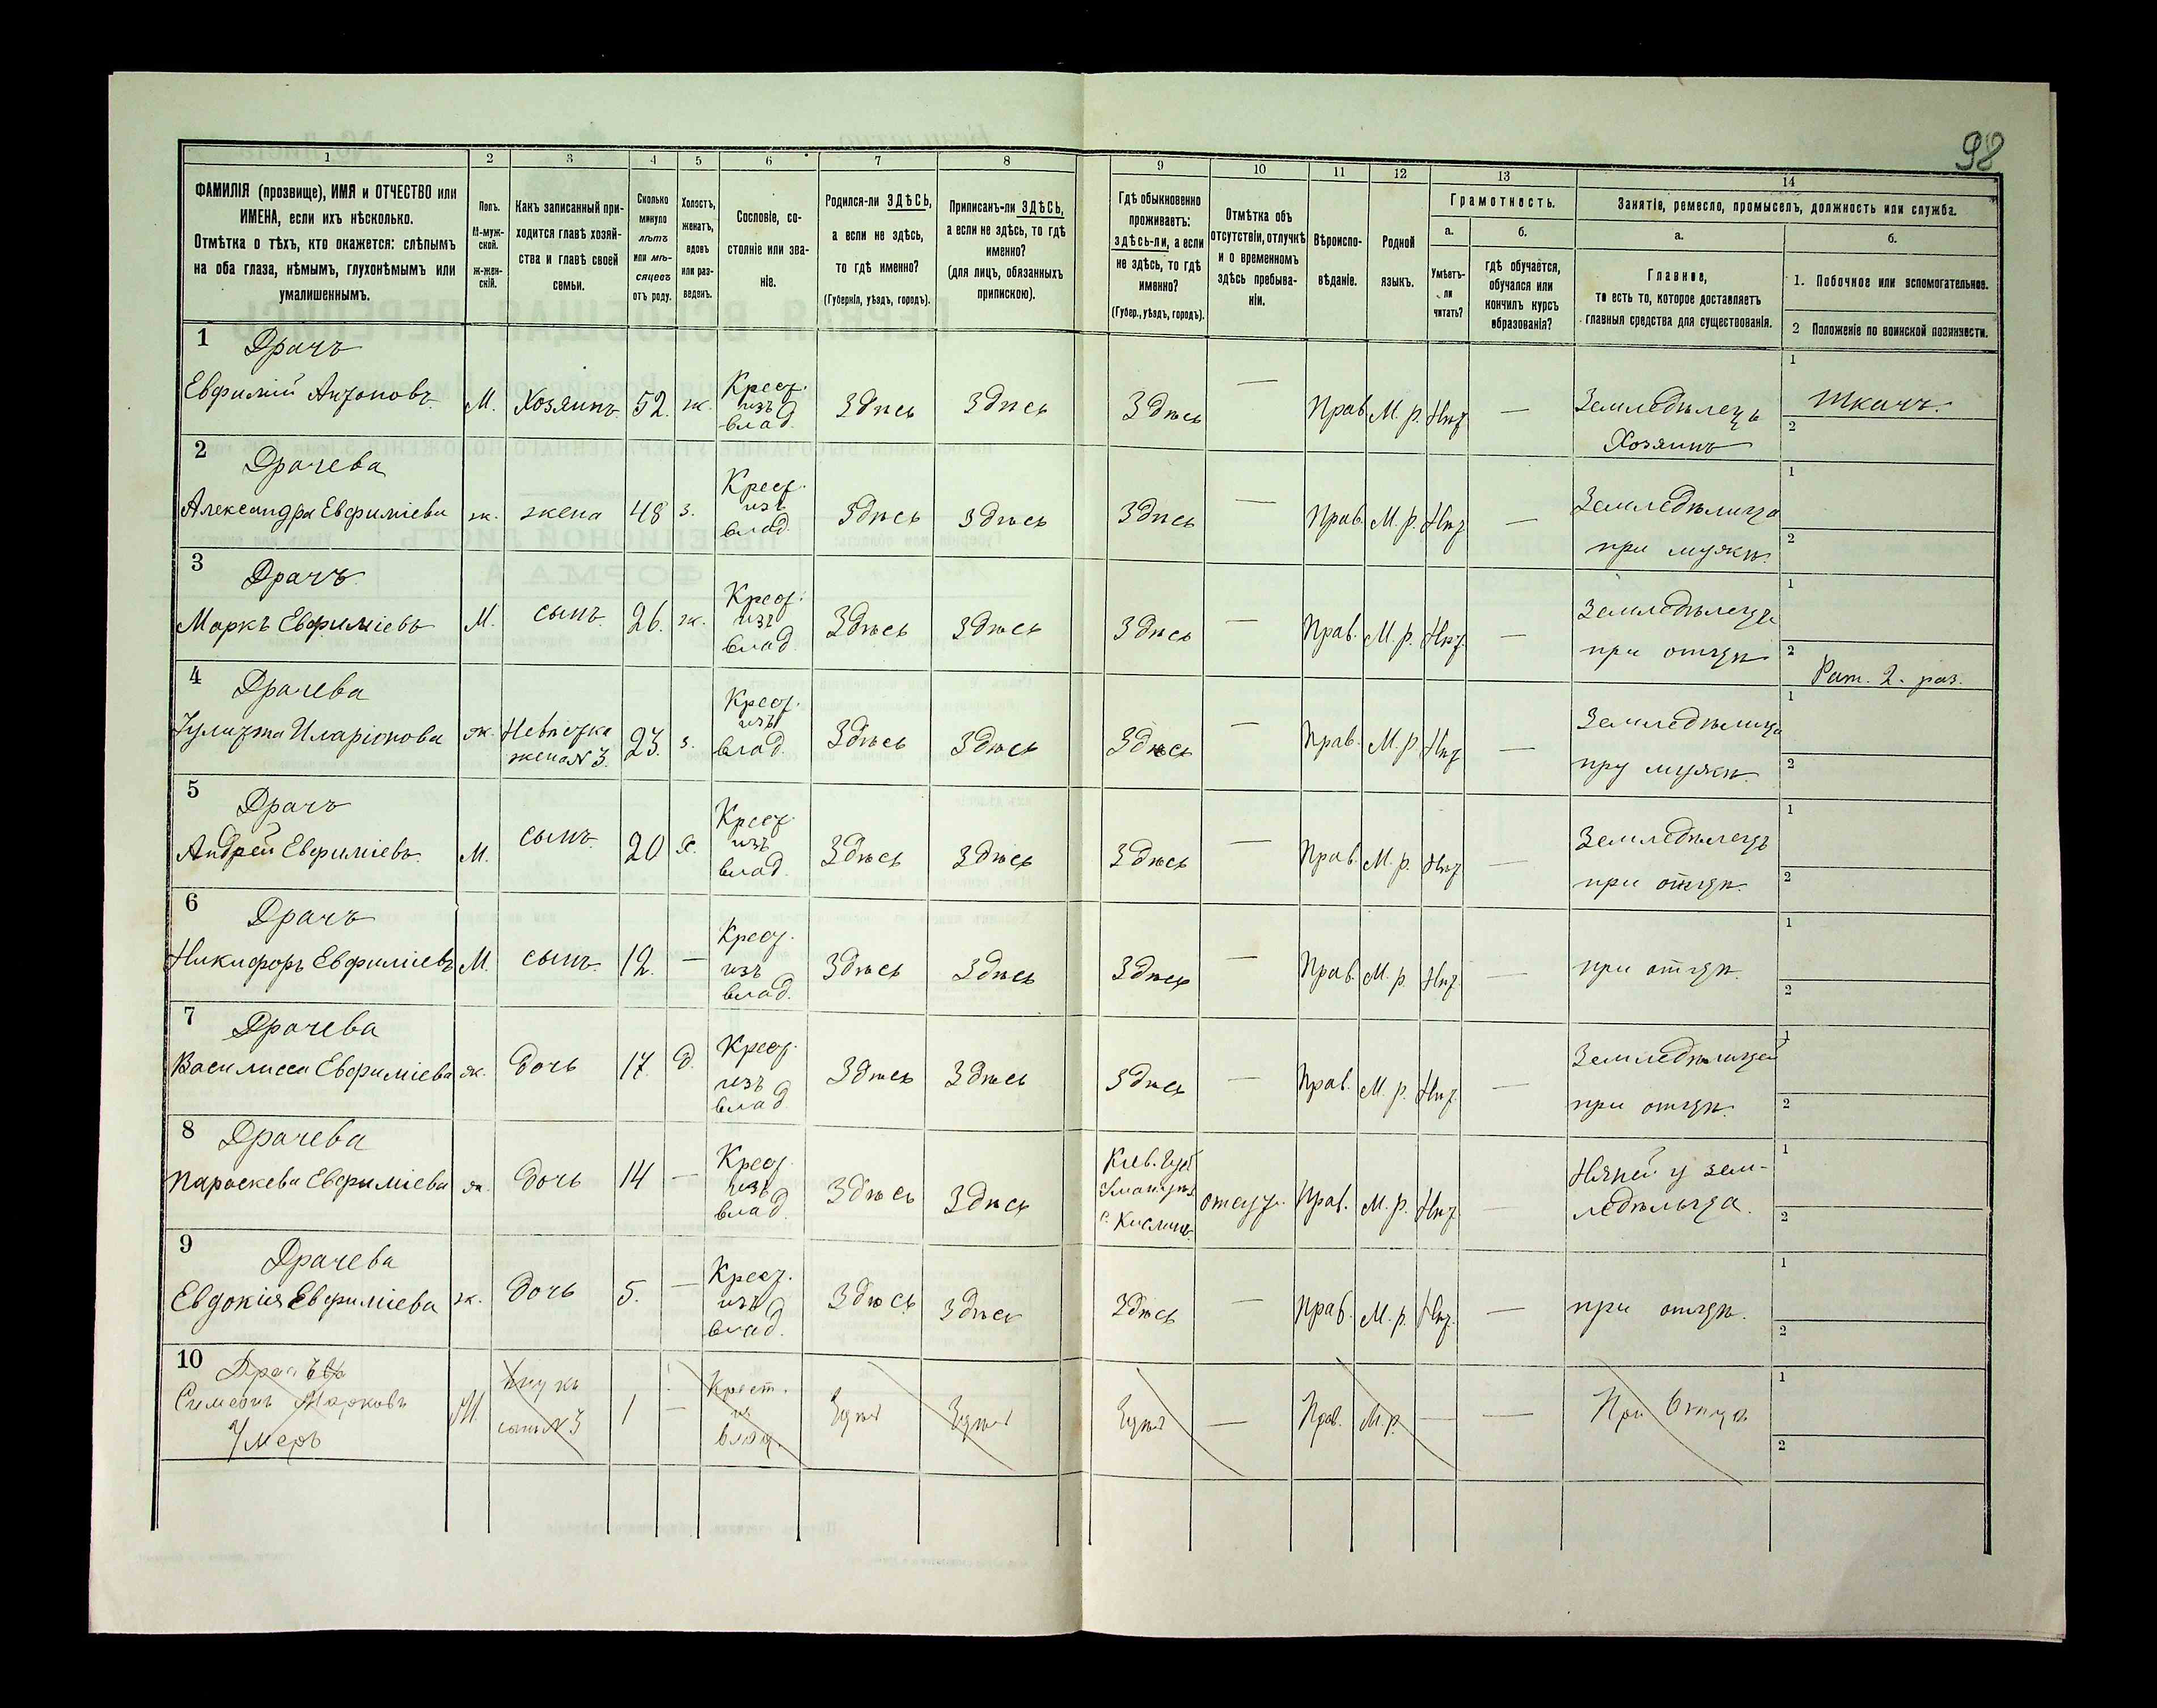 98
1 2 3 4 5 6 7 8 9 10 11 12 13 14
ФАМИЛІЯ (прозвище), ИМЯ и ОТЧЕСТВО или
ИМЕНА, если ихъ нѣсколько.
Отмѣтка о тѣхъ, кто окажется: слѣпымъ
на оба глаза, нѣмымъ, глухонѣмымъ или
умалишеннымъ.
Полъ.
М-муж-
ской.
ж-жен-
скій.
Какъ записанный при-
ходится главѣ хозяй-
ства и главѣ своей
семьи.
Сколько
минуло
лѣтъ
или мѣ-
сяцевъ
отъ роду.
Холостъ,
женатъ,
вдовъ
или раз-
веденъ.
Сословіе, со-
стояніе или зва-
ніе.
Родился-ли ЗДѢСЬ,
а если не здѣсь,
то гдѣ именно?
(Губернія, уѣздъ, городъ).
Приписанъ-ли ЗДѢСЬ,
а если не здѣсь, то гдѣ
именно?
(для лицъ, обязанныхъ
припискою).
Гдѣ обыкновенно
проживаетъ:
здѣсь-ли, а если
не здѣсь, то гдѣ
именно?
(Губер., уѣздъ, городъ).
Отмѣтка объ
отсутствіи, отлучкѣ
и о временномъ
здѣсь пребыва-
ніи.
Вѣроиспо-
вѣданіе.
Родной
языкъ.
Грамотность.
а.
Умѣетъ-
ли
читать?
б.
гдѣ обучается,
обучался или
кончилъ курсъ
образованія?
Занятіе, ремесло, промыселъ, должность или служба.
а.
Главное,
то есть то, которое доставляетъ
главныя средства для существованія.
б.
1. Побочное или вспомогательное.
2 Положеніе по воинской повинности.
1 Драчъ
Евфимій Антоновъ М. Хозяинъ 52. ж. Крест. изъ влад. Здѣсь Здѣсь Здѣсь — Прав. М. р. Нѣт — Земледѣлецъ
Хозяинъ
1 Ткачъ.
2
2 Драчева
Александра Евфиміева ж. жена 48 з. Крест. изъ влад. Здѣсь Здѣсь Здѣсь — Прав. М. р. Нѣт — Земледѣлица
при мужѣ.
1
2
3 Драчъ
Маркъ Евфиміевъ М. сынъ 26. ж. Крест. изъ влад. Здѣсь Здѣсь Здѣсь — Прав. М. р. Нѣт. — Земледѣлецъ
при отцѣ
1
2 Рат. 2. раз.
4 Драчева
Іулитта Иларіонова ж. Невѣстка
жена N 3. 23. з. Крест. изъ влад. Здѣсь Здѣсь Здѣсь — Прав. М. р. Нѣт — Земледѣлица
пру мужѣ.
1
2
5 Драчъ
Андрей Евфиміевъ. М. сынъ. 20 х. Крест. изъ влад. Здѣсь Здѣсь Здѣсь — Прав. М. р. Нѣт — Земледѣлецъ
при отцѣ.
1
2
6 Драчъ
Никифоръ Евфиміевъ М. сынъ. 12. — Крест. изъ влад. Здѣсь Здѣсь Здѣсь — Прав. М. р. Нѣт — при отцѣ.
1
2
7 Драчева
Василисса Евфиміева ж. дочь 17. д. Крест. изъ влад. Здѣсь Здѣсь Здѣсь — Прав. М. р. Нѣт — Земледѣлицей
при отцѣ.
1
2
8 Драчева
Параскева Евфиміева ж. дочь 14 — Крест. изъ влад. Здѣсь Здѣсь Кіев. губ.
с. отсут. Прав. М. р. Нѣт — Няней у зем-
ледѣльца.
1
2
9 Драчева
Евдокія Евфиміева ж. дочь 5. — Крест. изъ влад. Здѣсь Здѣсь Здѣсь — Прав. М. р. Нѣт. — при отцѣ.
1
2
10
Симеонъ Марковъ
Умеръ
М. Внукъ
сынъ N 3 1 — Крест. из влад. Здѣсь Здѣсь Здѣсь — Прав. М. р. — — При отцѣ
1
2